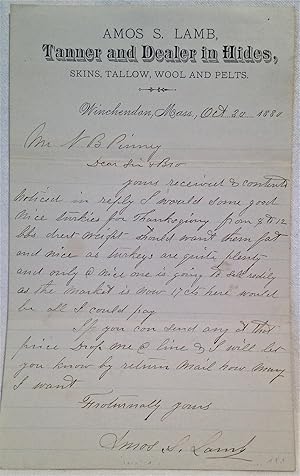 AMOS S. LAMB,
Tanner and Dealer in Hides,
SKINS, TALLOW, WOOL AND PELTS.
Winchendon, Mass, Oct 20 1880
Mr N. B. Pinney
Dear Sir & Bro
yours received & contents
Noticed in reply I would some good
Nice Turkies for Thanksgiving from 8 to 12
lbs drest weight should want them fat
and nice as turkeys are quite plenty
and only a nice one is going to sell redily
as the Market is Now 17 cts here would
be all I could pay
If you can send any at that
price Drop Me a line & I will let
you know by return Mail how Many
I want
Fraturnally yours
Amos S. Lamb